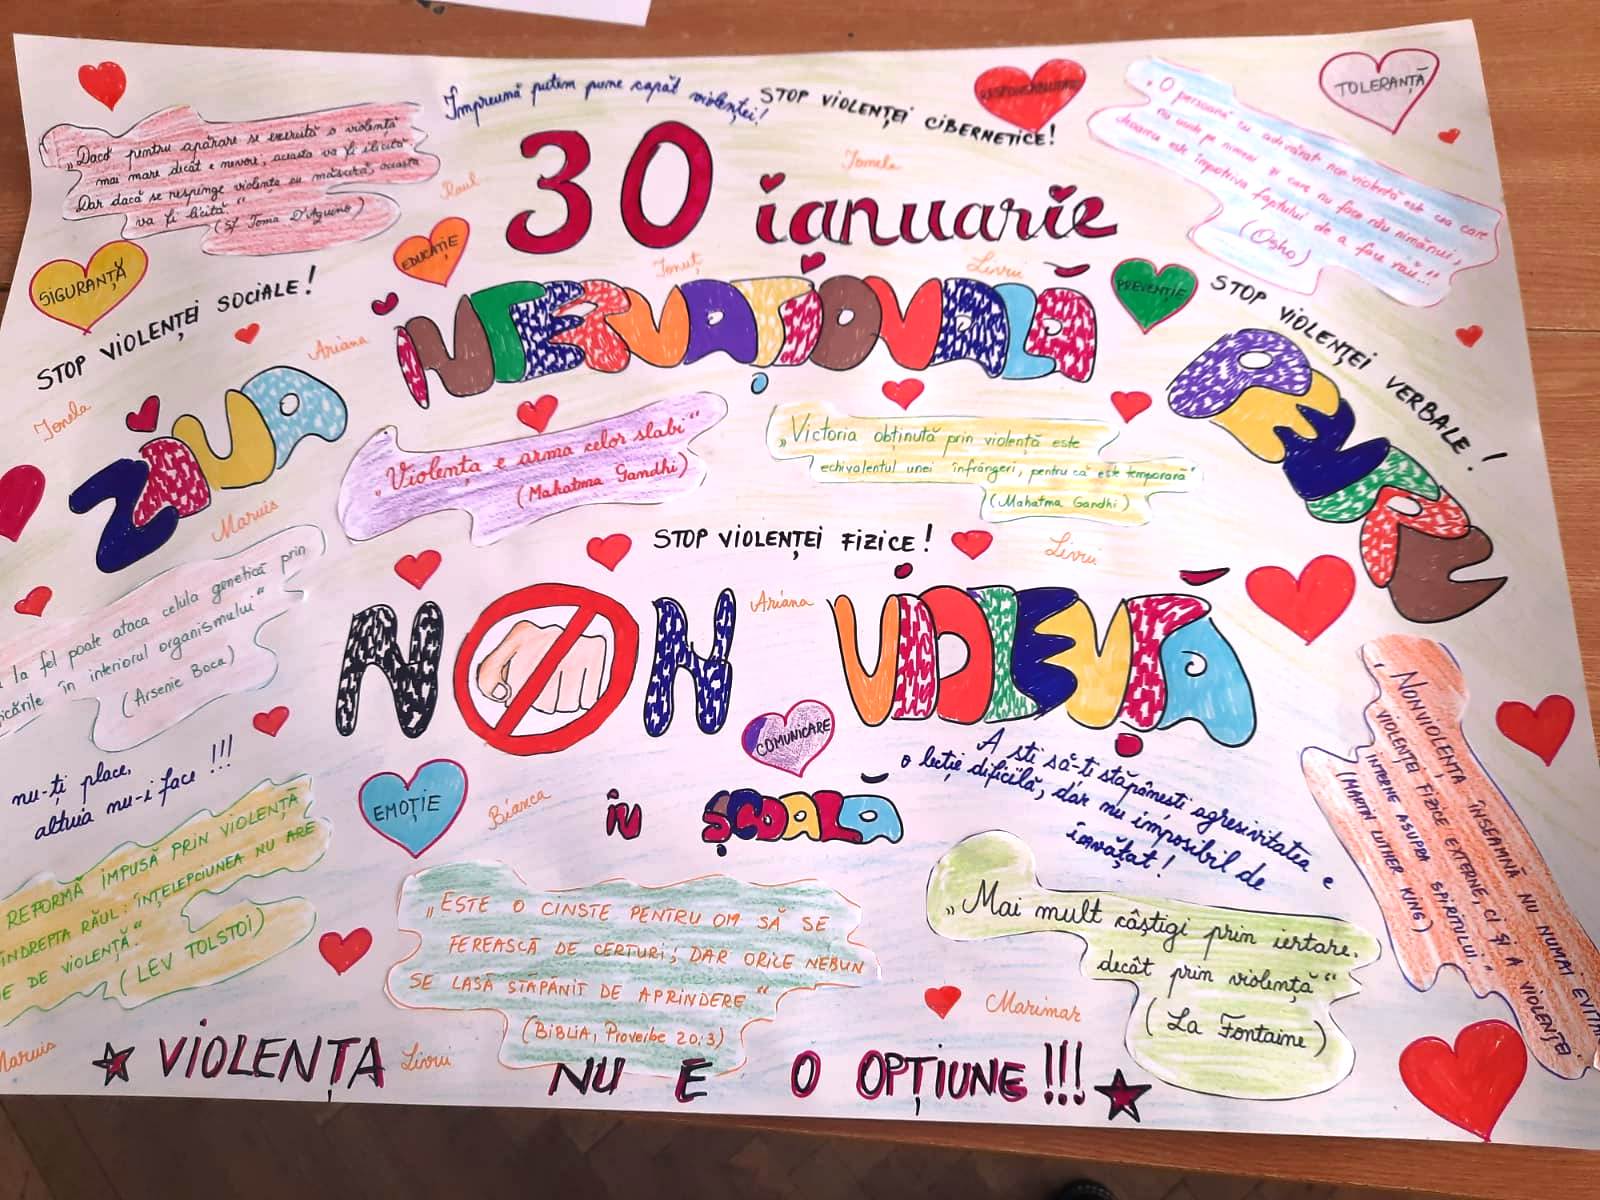 Împreună putem pune capăt violenței!
STOP VIOLENȚEI CIBERNETICE!
RESPONSABILITATE
TOLERANȚĂ
„Dacă pentru apărare se exercită o violență
mai mare decât e nevoie, aceasta va fi ilicită
Dar dacă se respinge violența cu măsură, aceasta
va fi licită“
(Sf Toma D'Aquino)
Raul
30 ianuarie
Ionela
„O persoană cu adevărat non violentă este cea care
nu ucide pe nimeni și care nu face rău nimănui,
deoarece este împotriva faptului de a face rău..."
(Osho)
SIGURANȚĂ
EDUCAȚIE
Ionuț
Livui
PREVENȚIE
STOP VIOLENȚEI SOCIALE!
STOP VIOLENȚEI VERBALE!
Ariana
Ionela
ZIUA INTERNAȚIONALĂ PENTRU
„Violența e arma celor slabi“
(Mahatma Gandhi)
„Victoria obținută prin violență este
echivalentul unei înfrângeri, pentru că este temporară“
(Mahatma Gandhi)
Maruis
STOP VIOLENȚEI FIZICE!
Livui
la fel poate ataca celula genetică prin
în interiorul organismului“
(Arsenie Boca)
NON VIOLENȚĂ
Ariana
COMUNICARE
nu-ți place,
altuia nu-i face !!!
EMOȚIE
Bianca
ÎN ȘCOALĂ
A sti să-ți stăpânești agresivitatea e
o lecție dificilă, dar nu imposibil de
învățat!
„NONVIOLENȚA ÎNSEAMNĂ NU NUMAI
VIOLENȚEI FIZICE EXTERNE, CI ȘI A VIOLENȚEI
INTERNE ASUPRA SPIRITULUI."
(MARTIN LUTHER KING)
REFORMĂ IMPUSĂ PRIN VIOLENȚĂ
ÎNDREPTA RĂUL: ÎNȚELEPCIUNEA NU ARE
DE VIOLENȚĂ."
(LEV TOLSTOI)
„ESTE O CINSTE PENTRU OM SĂ SE
FEREASCĂ DE CERTURI; DAR ORICE NEBUN
SE LASĂ STĂPÂNIT DE APRINDERE“
(BIBLIA, Proverbe 20:3)
„Mai mult câștigi prin iertare,
decât prin violență“
(La Fontaine)
Marimar
Maruis
Livui
VIOLENȚA NU E O OPȚIUNE!!!